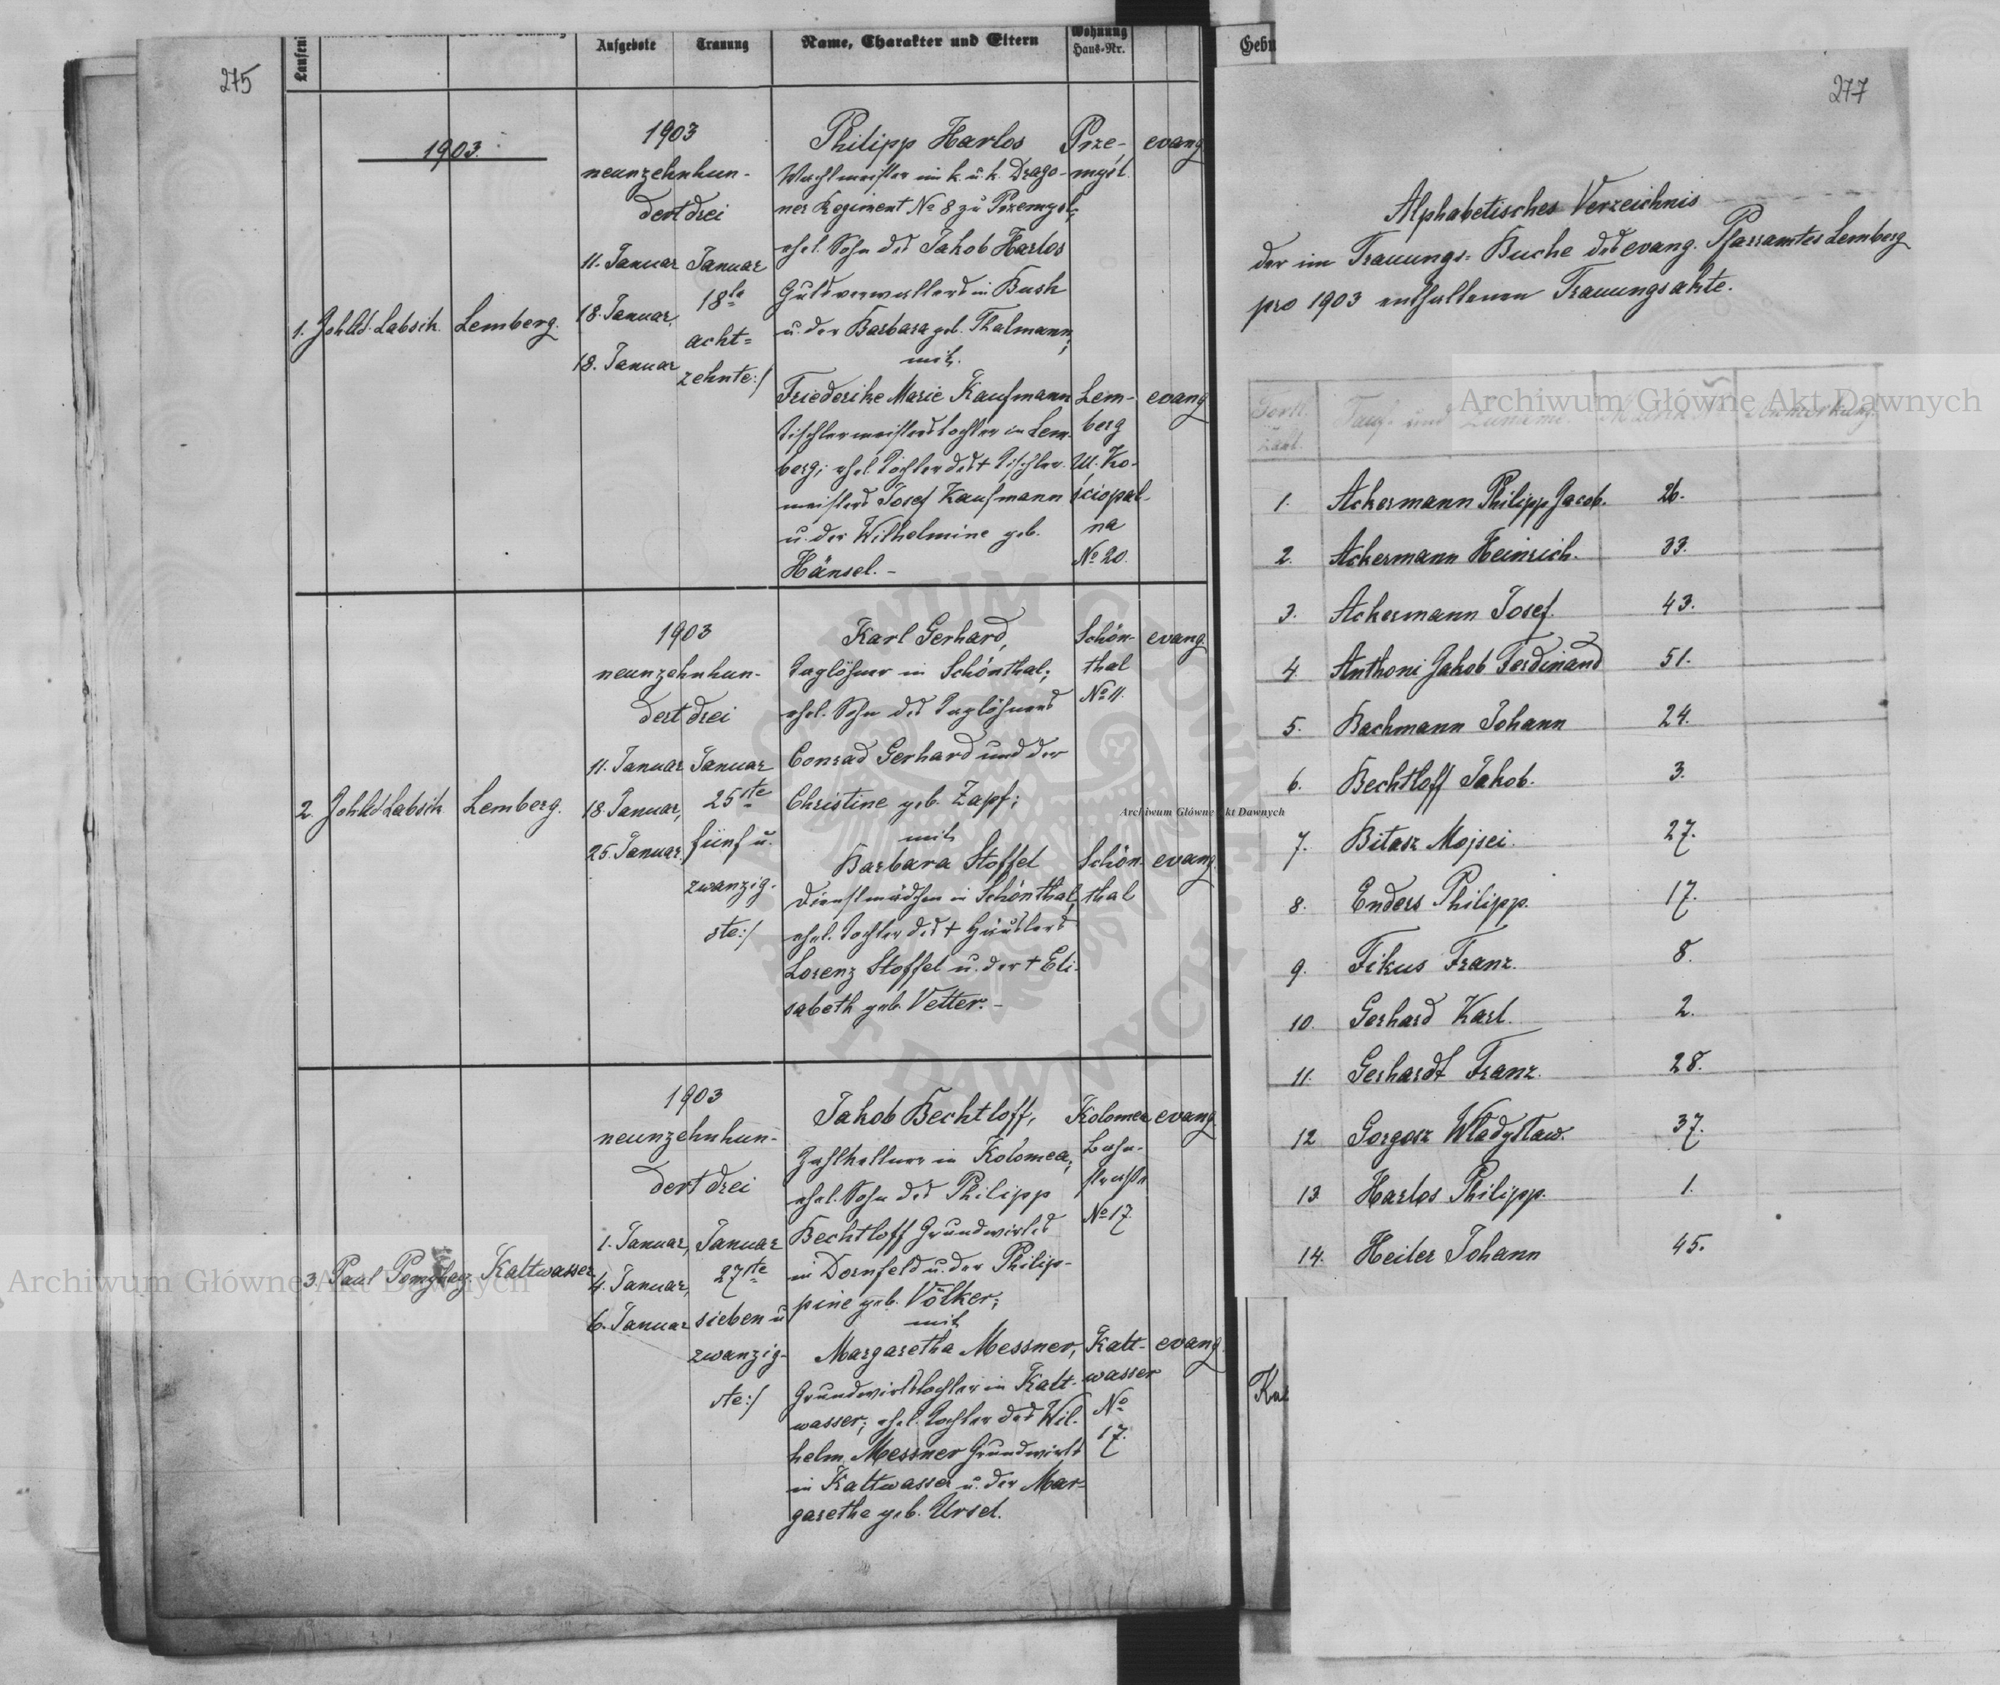 275
Aufgebote
Trauung
Name, Charakter und Eltern
Wohnung
Haus-Nr.
1903.
1.
Lemberg.
1903
neunzehnhun-
dert drei
11. Januar
18. Januar,
18. Januar
Januar
18te
acht=
zehnte:/
Philipp Harlos
Wachtmeister im k. u. k. Drago-
ner Regiment No 8 zu Przemysl;
ehel. Sohn des Jakob Harlos
Gutsverwalters in Busk
u. der Barbara geb. Thalmann;
mit
Friederike Marie Kaufmann
Tischlermeisterstochter in Lem-
berg; ehel. Tochter des + Tischler-
meisters Josef Kaufmann
u. der Wilhelmine geb.
Hänsel. -
Prze-
myśl.
Lem-
berg
Ul. Ko-
ściopal-
na
No 20.
evang
evang
2.
Lemberg.
1903
neunzehnhun-
dert drei
11. Januar
18. Januar,
25. Januar
Januar
25ste
fünf u.
zwanzig-
ste:/
Karl Gerhard,
Taglöhner in Schönthal;
ehel. Sohn des Taglöhners
Conrad Gerhard und der
Christine geb. Zapf;
mit
Barbara Stoffel
Dienstmädchen in Schönthal,
ehel. Tochter des + Häuslers
Lorenz Stoffel u. der + Eli-
sabeth geb. Vetter. -
Schön-
thal
No 11.
Schön-
thal
evang.
evang
3.
Paul
Kaltwasser
1903
neunzehnhun-
dert drei
1. Januar,
4. Januar,
6. Januar
Januar
27ste
sieben u
zwanzig-
ste:/
Jakob Bechtloff,
Zahlkellner in Kolomea;
ehel. Sohn des Philipp
Bechtloff Grundwirtes
in Dornfeld u. der Philip-
pine geb. Völker;
mit
Margaretha Messner,
Grundwirtstochter in Kalt-
wasser; ehel. Tochter des Wil-
helm Messner Grundwirts
in Kaltwasser u. der Mar-
garetha geb. Ursel.
Kolomea
Bahn-
straße
No 17
Kalt-
wasser
No
17.
evang
evang
277
Alphabetisches Verzeichnis
der im Trauungs-Buche des evang. Pfarramtes Lemberg
pro 1903 enthaltenen Trauungsakte.
1. Ackermann Philipp Jacob. 26.
2. Ackermann Heinrich. 33.
3. Ackermann Josef. 43.
4. Anthoni Jakob Ferdinand 51.
5. Bachmann Johann 24.
6. Bechtloff Jakob. 3.
7. Bitasz Mojsei. 27.
8. Enders Philipp. 17.
9. Fikus Franz. 8.
10. Gerhard Karl. 2.
11. Gerhardt Franz. 28.
12. Gorgosz Władysław. 37.
13. Harlos Philipp. 1.
14. Heiler Johann 45.
Archiwum Główne Akt Dawnych
Archiwum Główne Akt Dawnych
Archiwum Główne Akt Dawnych